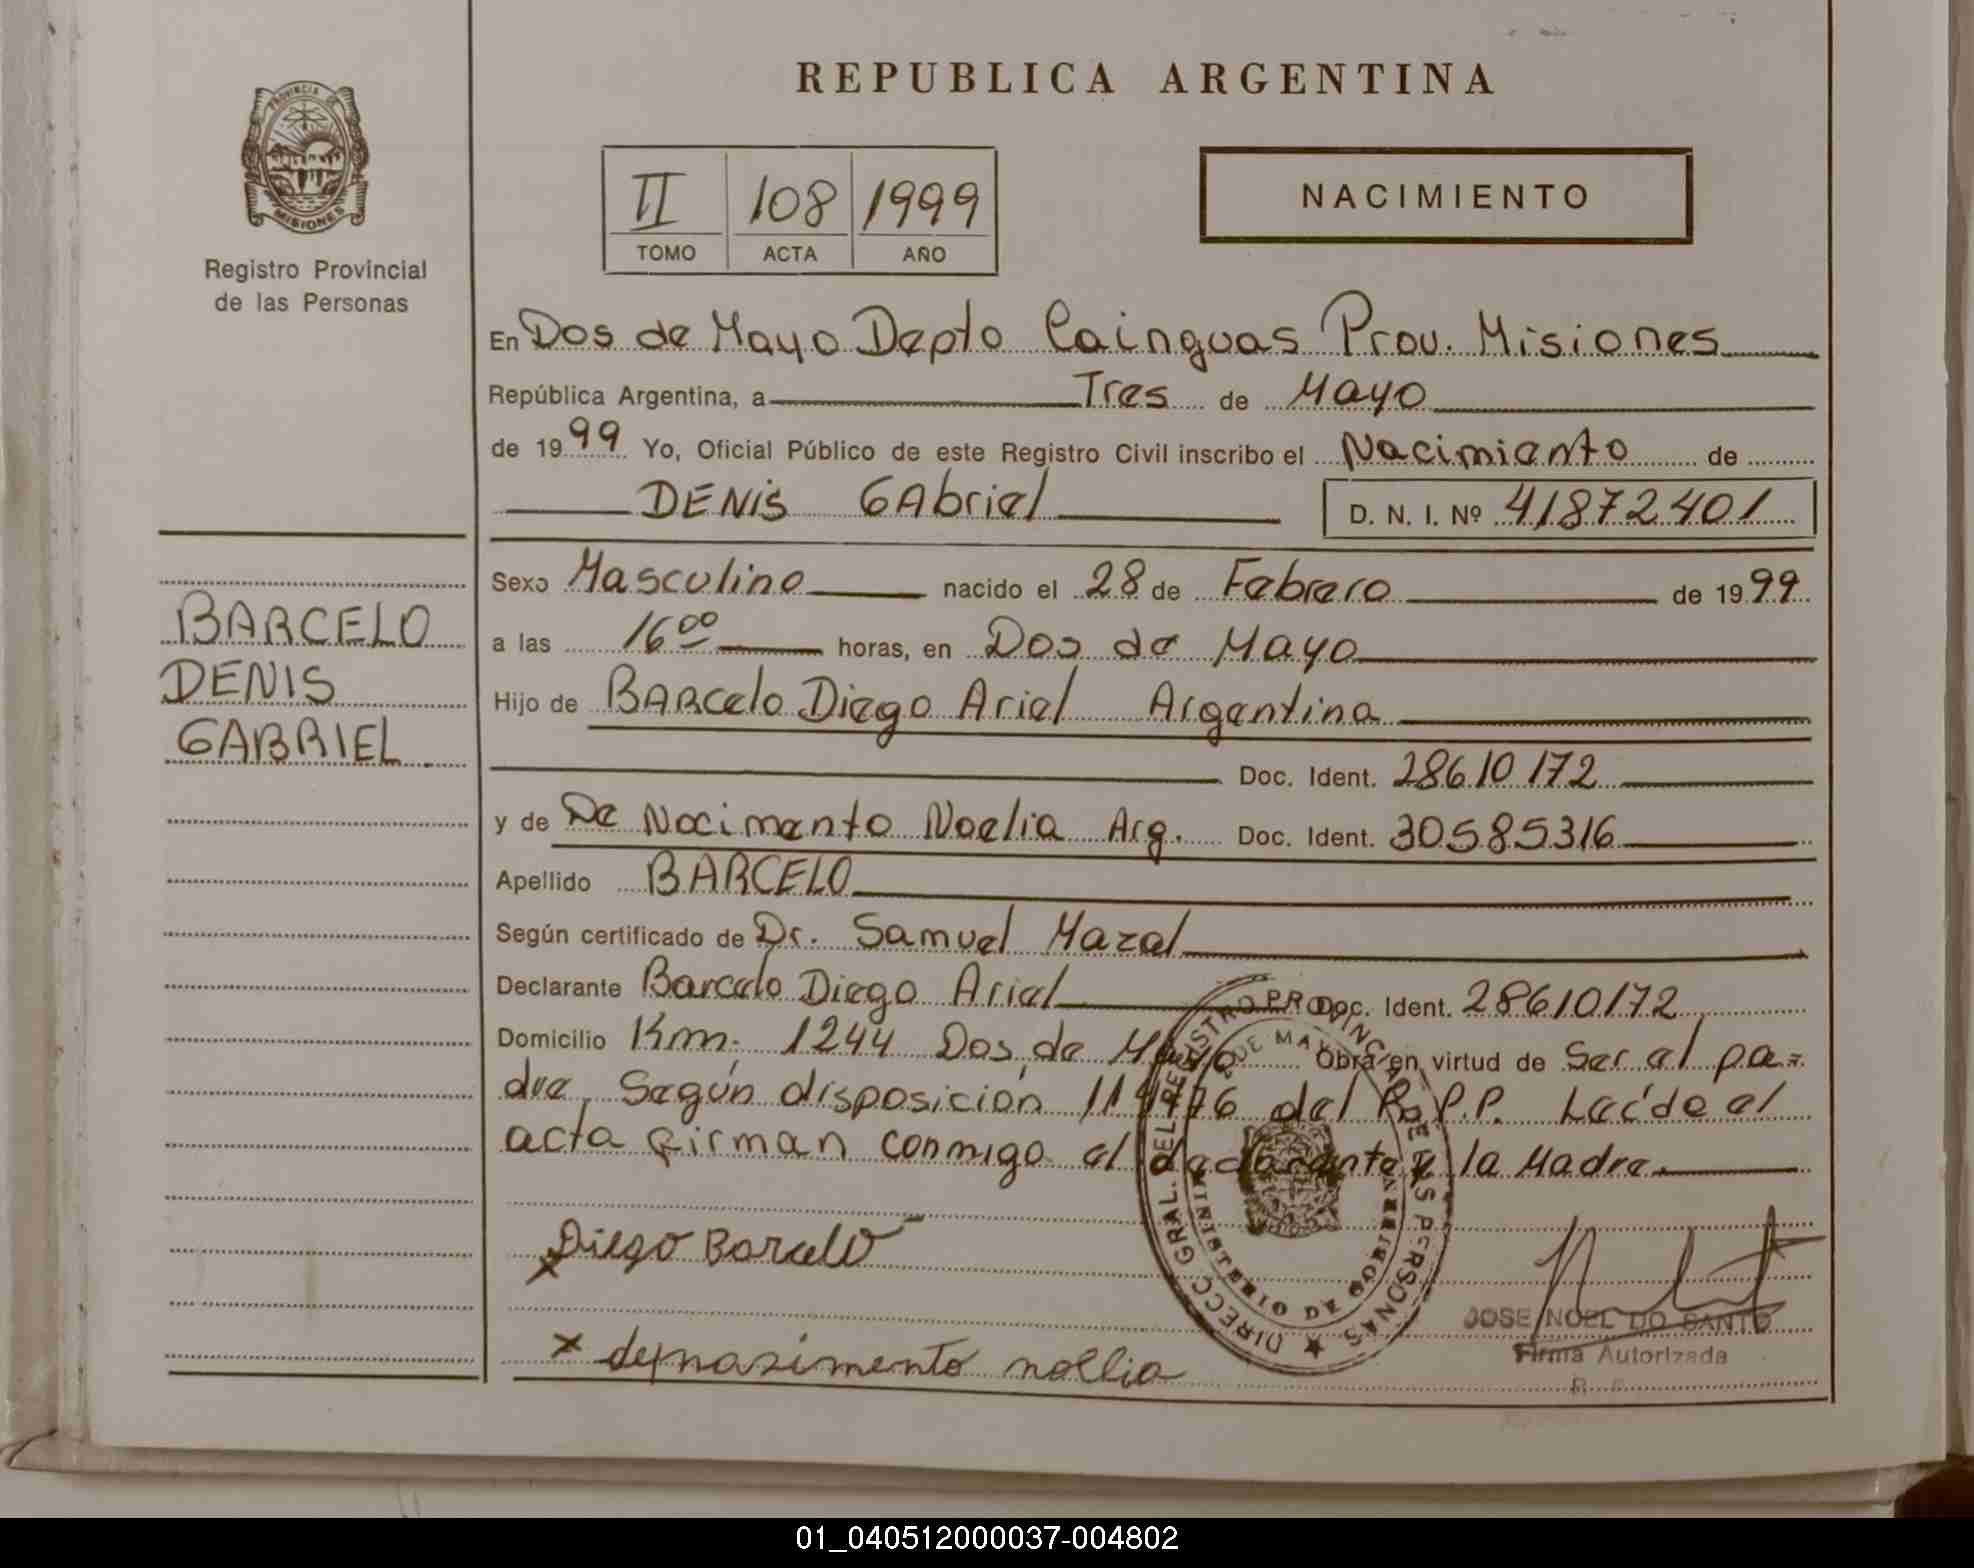 REPUBLICA ARGENTINA
PROVINCIA DE
MISIONES
Registro Provincial
de las Personas
II 108 1999
TOMO ACTA AÑO
NACIMIENTO
En Dos de Mayo Depto Cainguas Prov. Misiones
República Argentina, a Tres de Mayo
de 1999 Yo, Oficial Público de este Registro Civil inscribo el Nacimiento de
DENIS GAbriel D. N. I. Nº 41872401
BARCELO
DENIS
GABRIEL.
Sexo Masculino nacido el 28 de Febrero de 1999
a las 16 00 horas, en Dos de Mayo
Hijo de BARcelo Diego Ariel Argentina
Doc. Ident. 28610172
y de De Nocimento Noelia Arg. Doc. Ident. 30585316
Apellido BARCELO
Según certificado de Dr. Samuel Mazal
Declarante Barcelo Diego Ariel Doc. Ident. 28610172
Domicilio Km. 1244 Dos de Mayo Obra en virtud de Ser el pa=
dre, Según disposición del R.P.P. Leída el
acta firman conmigo el declarante y la Madre.
x Diego Barcelo
x denasimento noelia
DIRECC. GRAL. DEL REGISTRO PROVINCIAL DE LAS PERSONAS
MINISTERIO DE GOBIERNO
DE MAYO
JOSE NOEL DO SANTO
Firma Autorizada
01_040512000037-004802